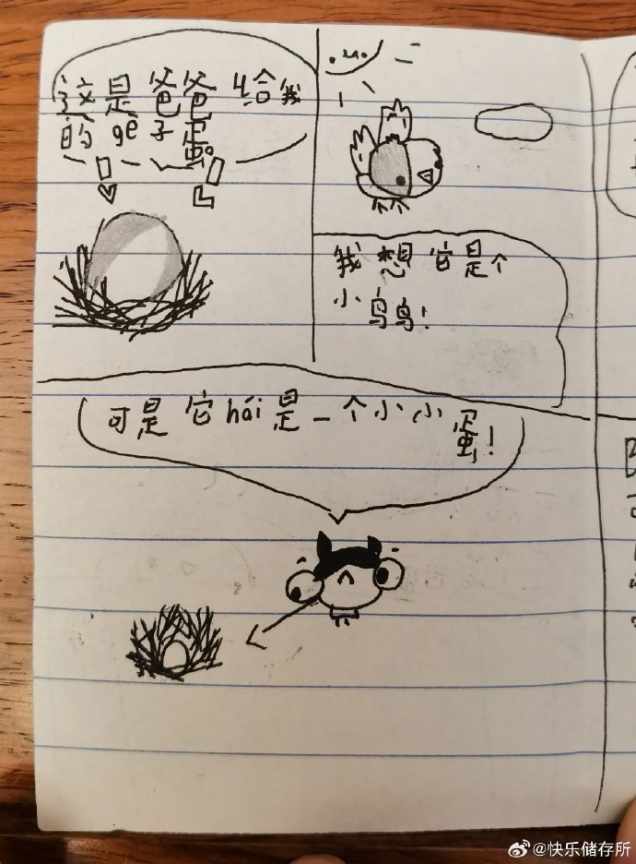 这是爸爸给我
的gē子蛋。
我想它是个
小鸟鸟！
可是它hái是一个小小
蛋！
@快乐储存所